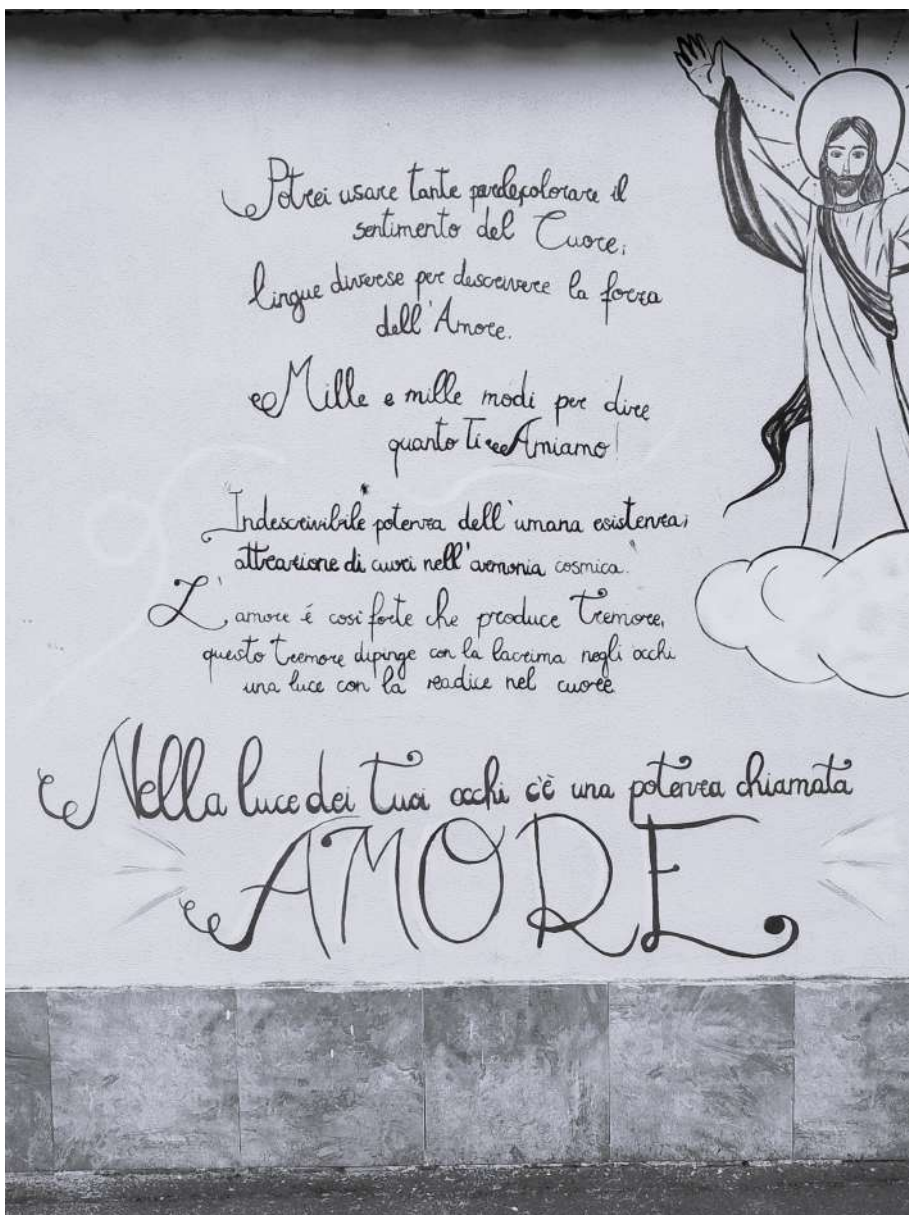 Potrei usare tante per colorare il
sentimento del Cuore,
lingue diverse per descrivere la forza
dell'Amore.
Mille e mille modi per dire
quanto Ti Amiamo!
Indescrivibile potenza dell'umana esistenza,
attrazione di cuori nell'armonia cosmica.
L'amore é così forte che produce Tremore,
questo Tremore dipinge con la lacrima negli occhi
una luce con la readice nel cuore
Nella luce dei Tuoi occhi c'è una potenza chiamata
AMORE